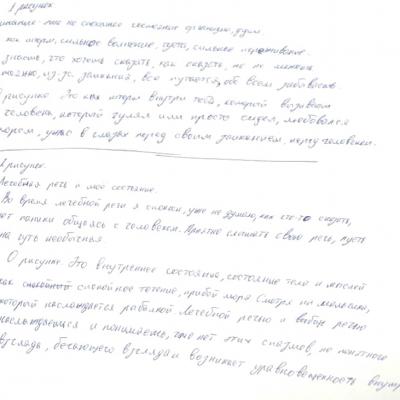 1 рисунок
мое не спокойное состояние организма, души
как шторм, сильное волнение, суета, сильное переживание.
знаешь, что хочешь сказать, как сказать, но не можешь
из-за заикания, все путается, обо всем забываешь.
О рисунке Это как шторм внутри тебя, который вызывает
человек, который гулял или просто сидел, любовался
морем, ужас в глазах перед своим заиканием, перед человеком.
2 рисунок.
Лечебная речь и мое состояние.
Во время лечебной речи я спокоен, уже не думаю, как что-то сказать,
нет паники общаясь с человеком. Приятно слышать свою речь, пусть
она чуть необычная.
О рисунке Это внутреннее состояние, состояние тела и мыслей
как спокойный спокойное течение, прибой моря смотря на мальчика,
который наслаждается работой лечебной речью и выбор речью
наслаждаешься и понимаешь, что нет этих спазмов, не понятного
взгляда, бегающего взгляда и возникает уравновешенность внутри